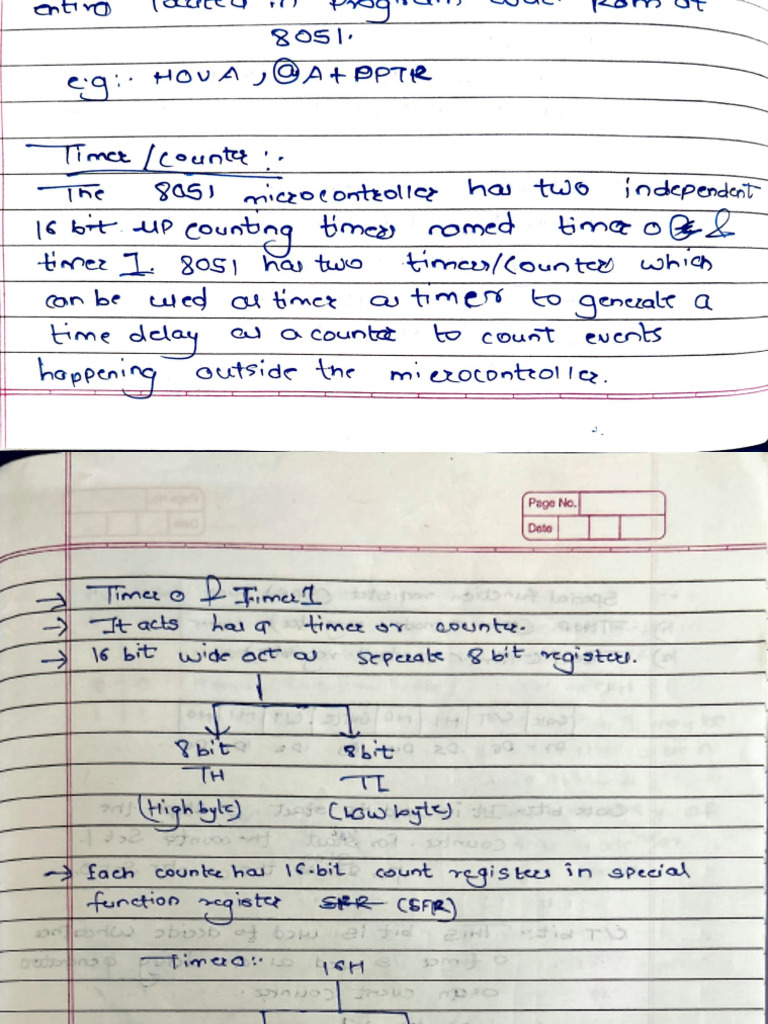 entire located in program code Rom of
8051.
e.g:- MOVA , @A+DPTR
Timer / Counter :-
The 8051 microcontroller has two independent
16 bit UP counting timers named timer 0 &
timer 1. 8051 has two timers/counter which
can be used as timer as timers to generate a
time delay as a counter to count events
happening outside the microcontroller.
Page No.
Date
→ Timer 0 & Timer 1
→ It acts has a timer or counter.
→ 16 bit wide act as seperate 8 bit registers.
8 bit 8 bit
TH TL
(High byte) (Low byte)
→ Each counter has 16-bit count registers in special
function register SRR (SFR)
Timer 0:- 16H